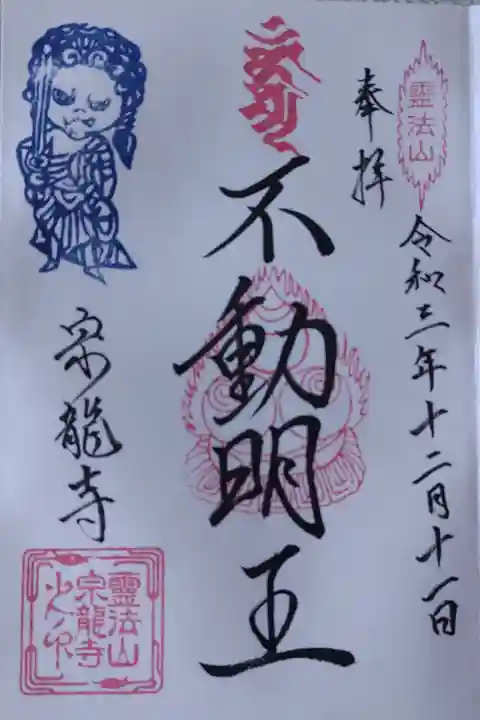 霊法山
奉拝
令和三年十二月十一日
不動明王
宗龍寺
霊法山
宗龍寺